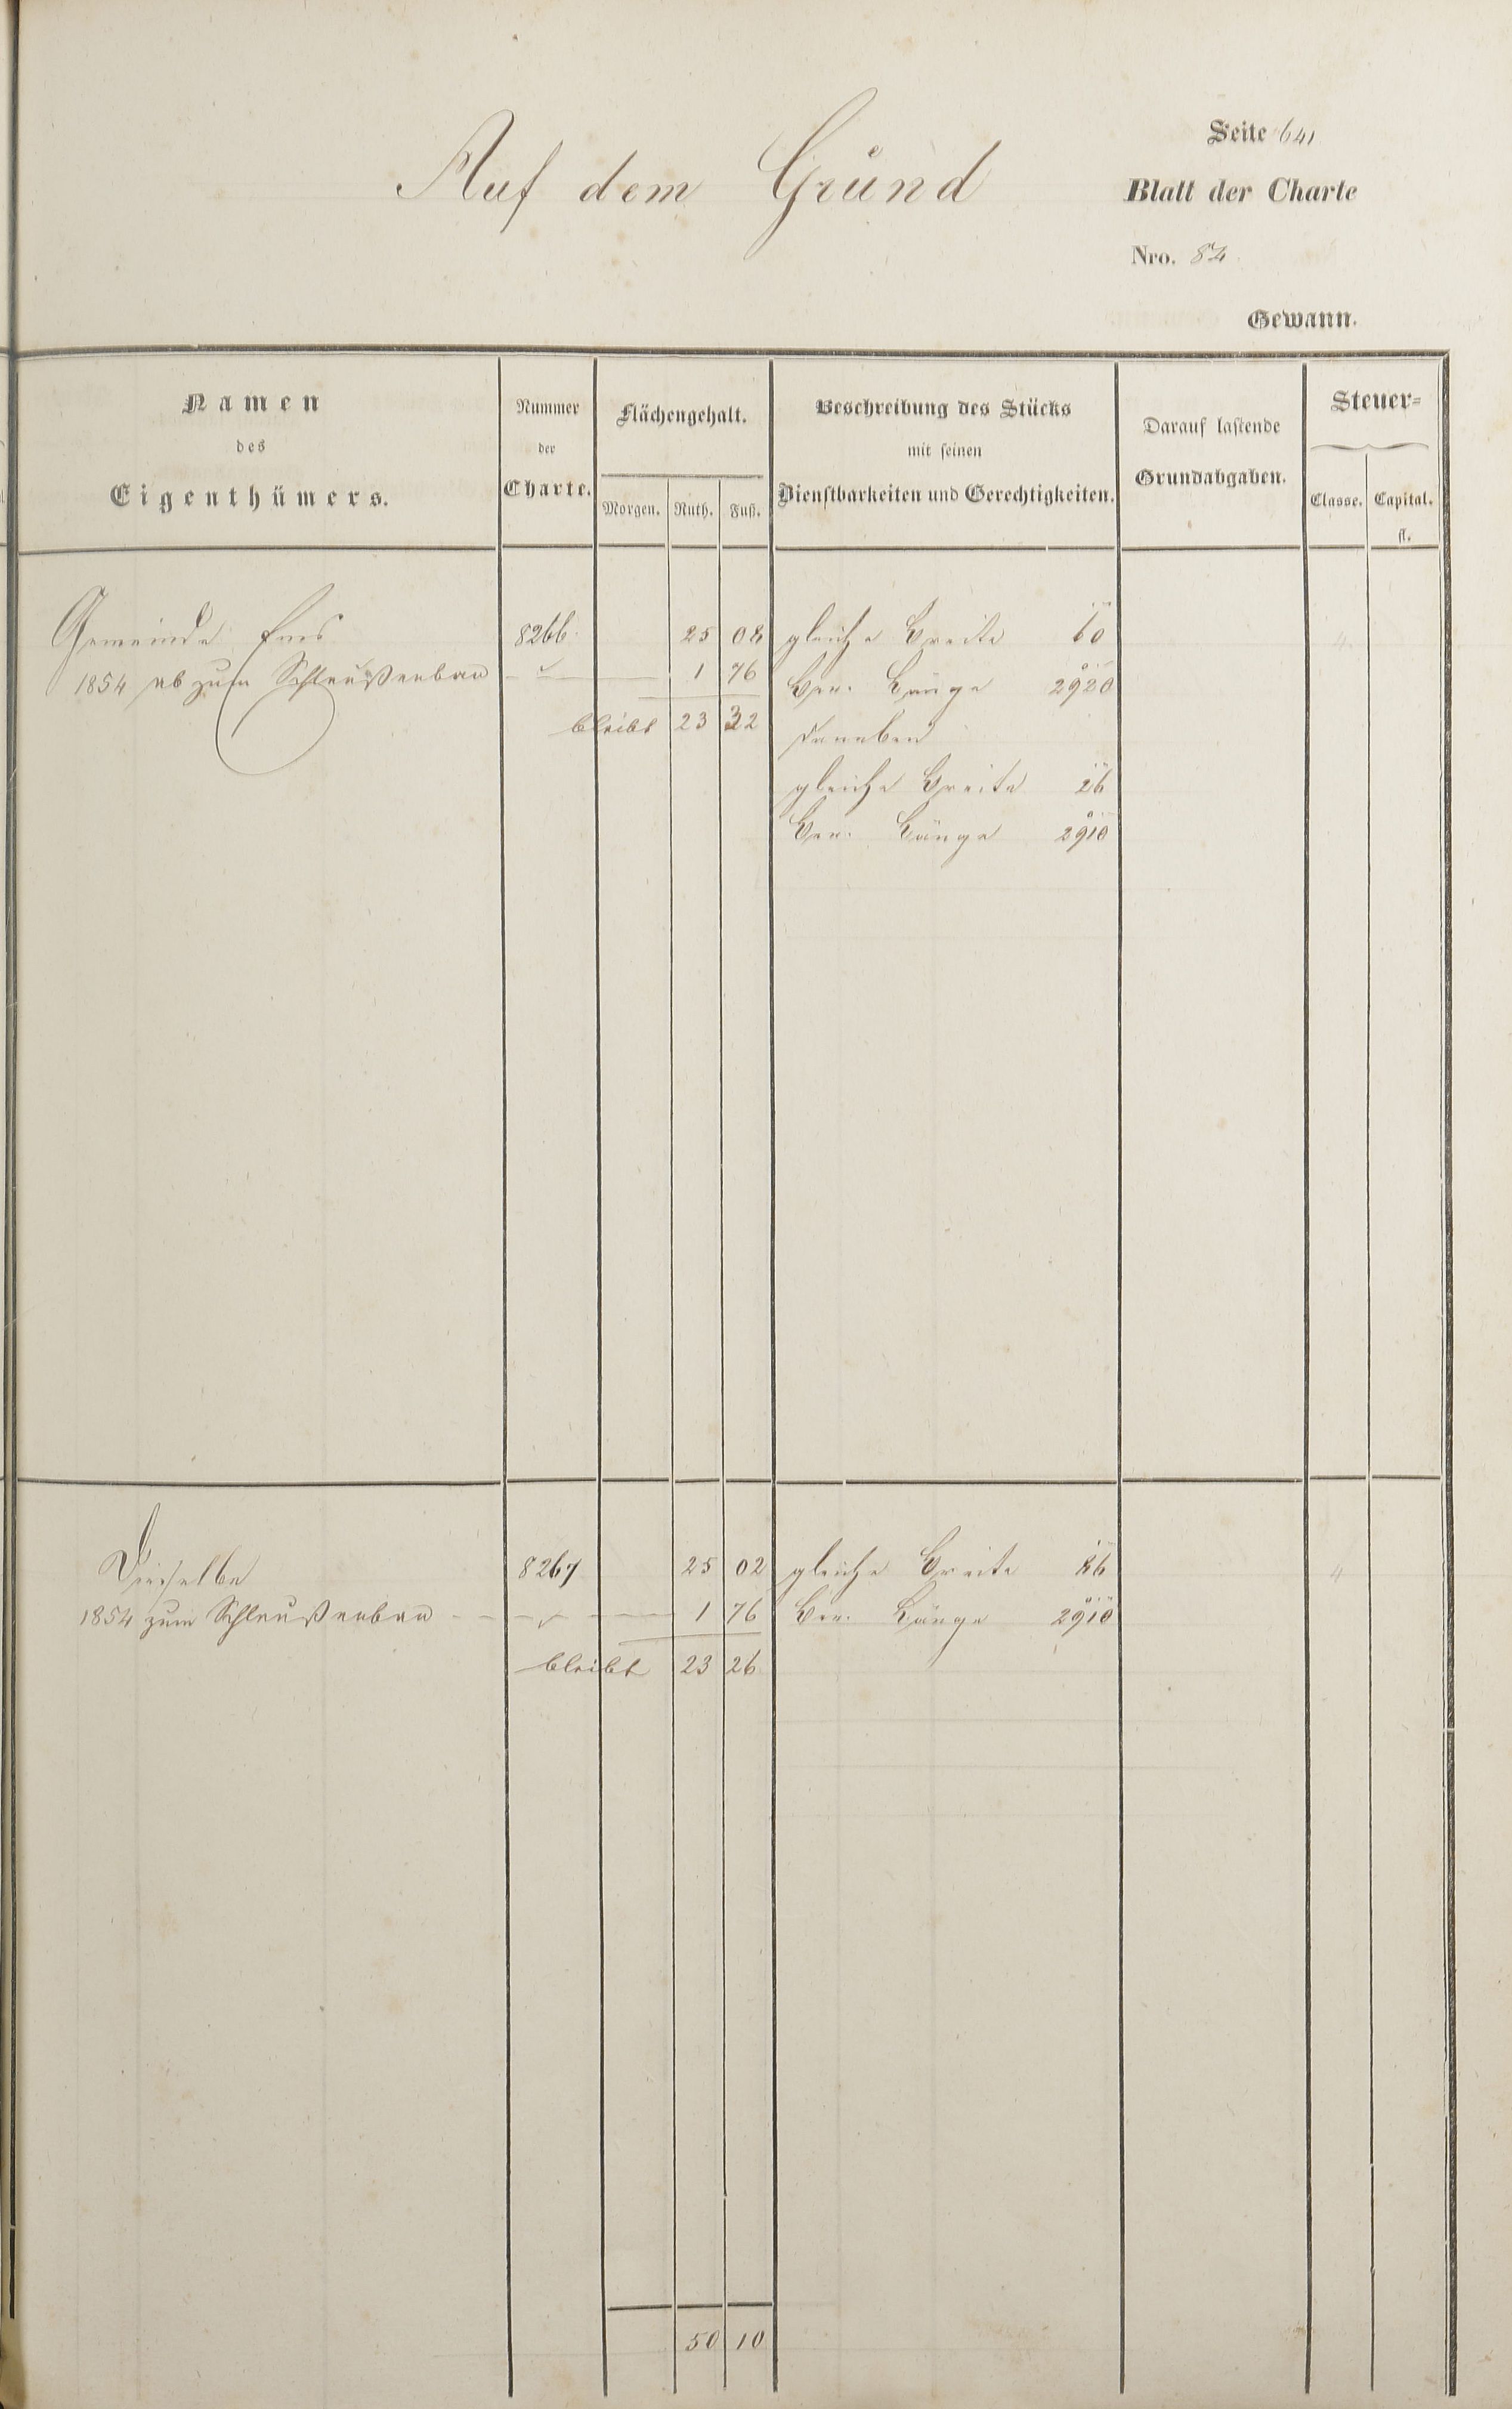 Auf dem Grund
Seite 641
Blatt der Charte
Nro. 82
Gewann.
Namen
des
Eigenthümers.
Nummer
der
Charte.
Flächengehalt.
Morgen. Ruth. Fuß.
Beschreibung des Stücks
mit seinen
Dienstbarkeiten und Gerechtigkeiten.
Darauf lastende
Grundabgaben.
Steuer-
Classe. Capital.
fl.
Gemeinde Ems 8266. 25 08 gleiche Breite 60 4
1854 ab zum Schleußenbau 1 76 Ber. Länge 2920
bleibt 23 32
daneben
gleiche Breite 26
Ber. Länge 2910
Dieselbe 8267 25 02 gleiche Breite 86 4
1854 zum Schleußenbau 1 76 Ber. Länge 2910
bleibt 23 26
50 10